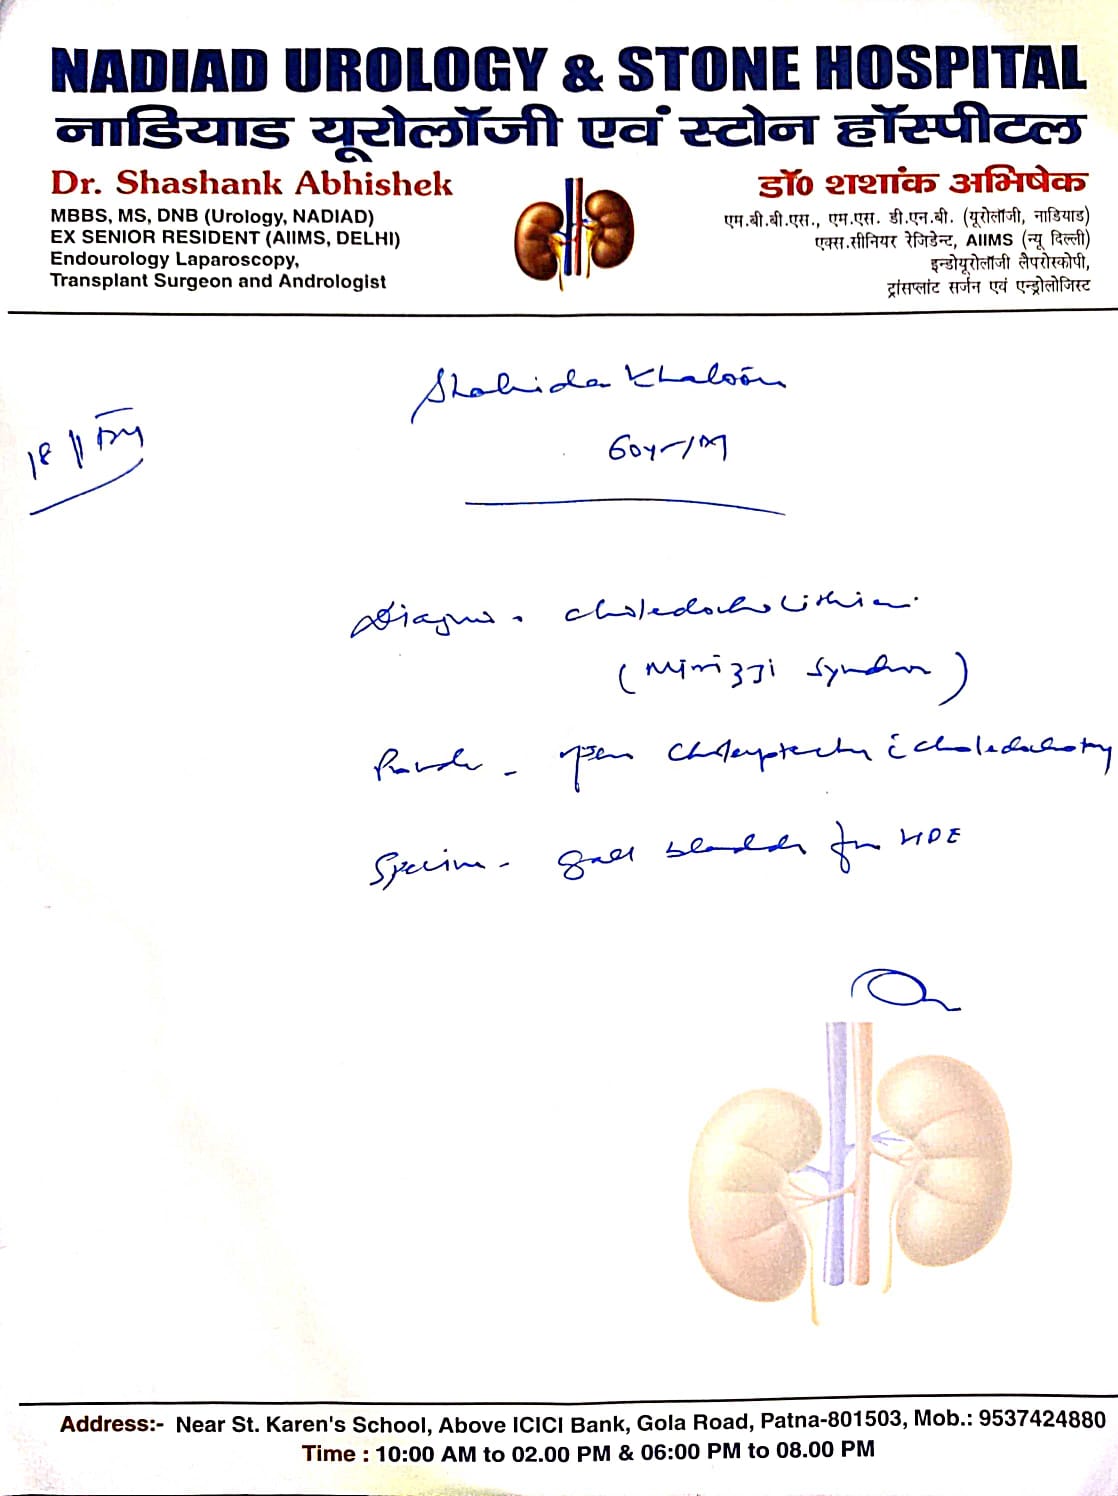 NADIAD UROLOGY & STONE HOSPITAL
नाडियाड यूरोलॉजी एवं स्टोन हॉस्पीटल
Dr. Shashank Abhishek
MBBS, MS, DNB (Urology, NADIAD)
EX SENIOR RESIDENT (AIIMS, DELHI)
Endourology Laparoscopy,
Transplant Surgeon and Andrologist
डॉ० शशांक अभिषेक
एम.बी.बी.एस., एम.एस. डी.एन.बी. (यूरोलॉजी, नाडियाड)
एक्स.सीनियर रेजिडेन्ट, AIIMS (न्यू दिल्ली)
इन्डोयूरोलॉजी लैपरोस्कोपी,
ट्रांसप्लांट सर्जन एवं एन्ड्रोलोजिस्ट
Shahida Khatoon
18
60yr/M
Diagnos - Choledocholithia.
(Mirizzi Syndrom)
open c choledochotomy
Specimen - gall bladder for HPE
Address:- Near St. Karen's School, Above ICICI Bank, Gola Road, Patna-801503, Mob.: 9537424880
Time : 10:00 AM to 02.00 PM & 06:00 PM to 08.00 PM